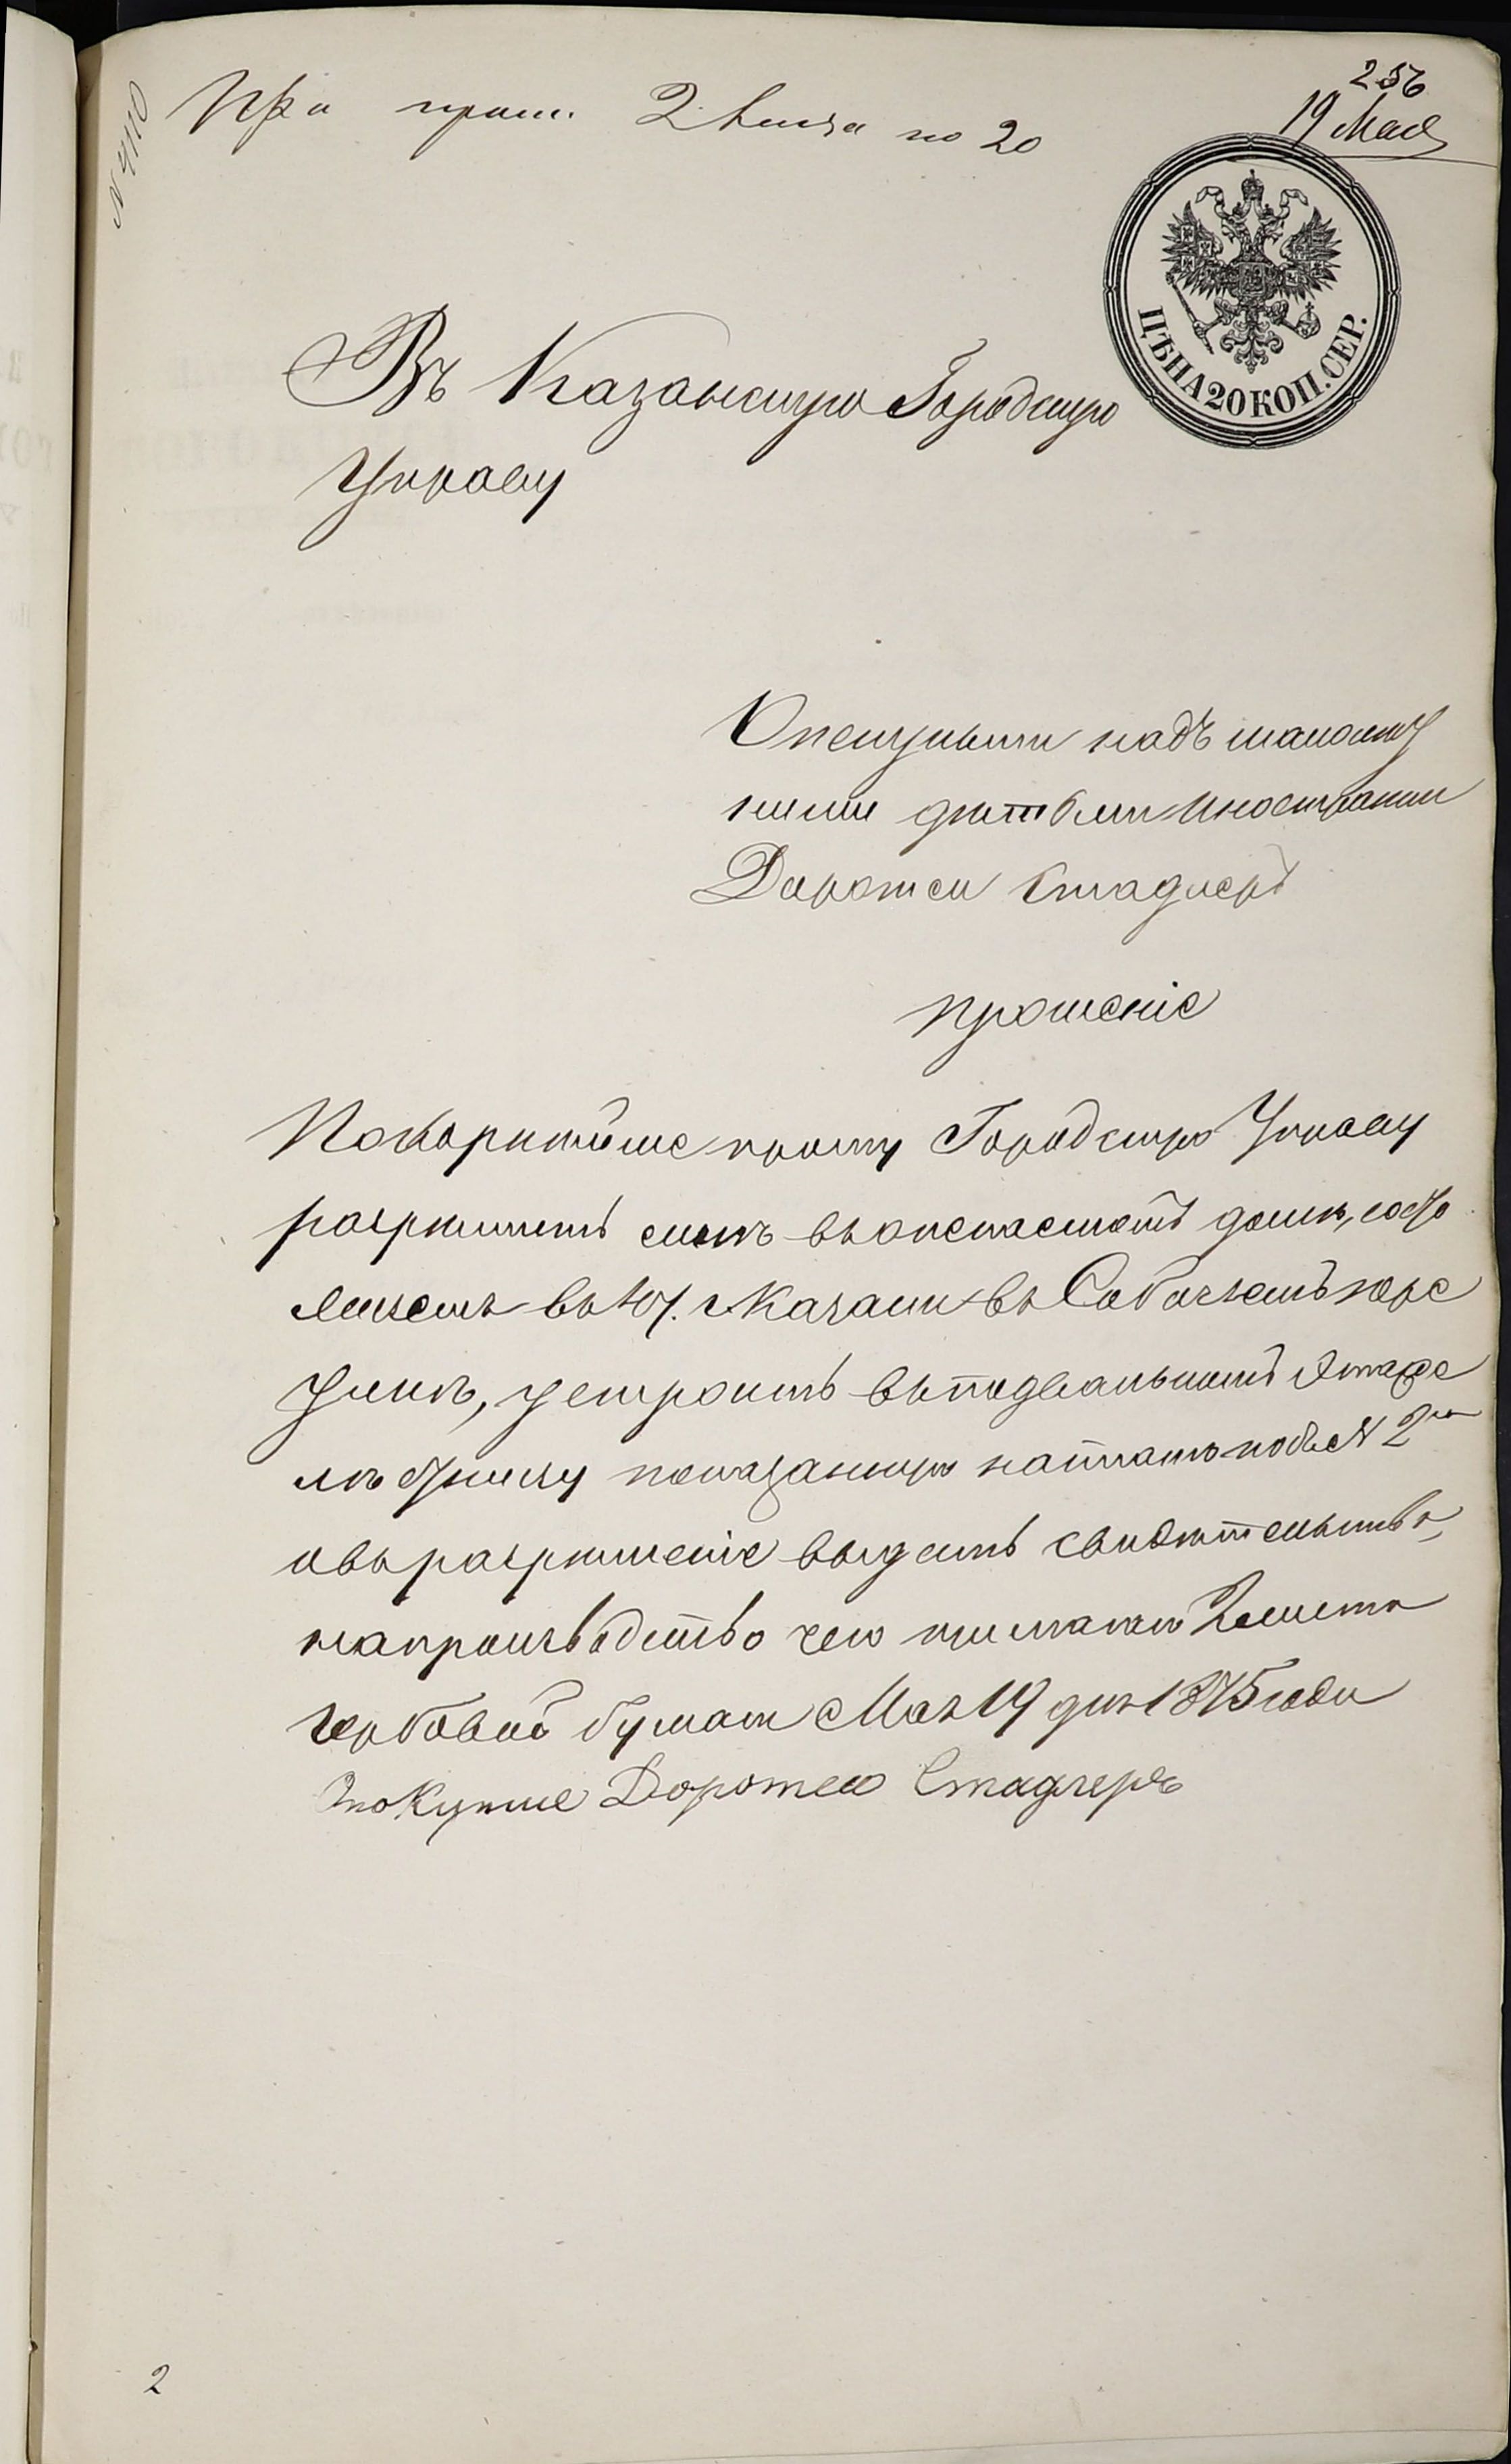 256
19 Мая
№ 4110
При прош. 2 листа по 20
ЦѢНА 20 КОП. СЕР.
Въ Казанскую Городскую
Управу
Опекунши надъ малолѣт
ними дѣтьми Иностранки
Доротеи Стадлеръ
прошеніе
Покорнѣйше прошу Городскую Управу
разрѣшить мнѣ въ опекаемомъ домѣ, состо
ящемъ въ г. Казани въ Собачьемъ пере
улкѣ, устроить въ подвальномъ этаже
показанную на планѣ подъ № 2мъ
и въ разрѣшеніе выдать свидѣтельство,
на производство чего прилагаю 2 листа
гербовой бумаги Мая 19 дня 1875 года
Доротея Стадлеръ
2